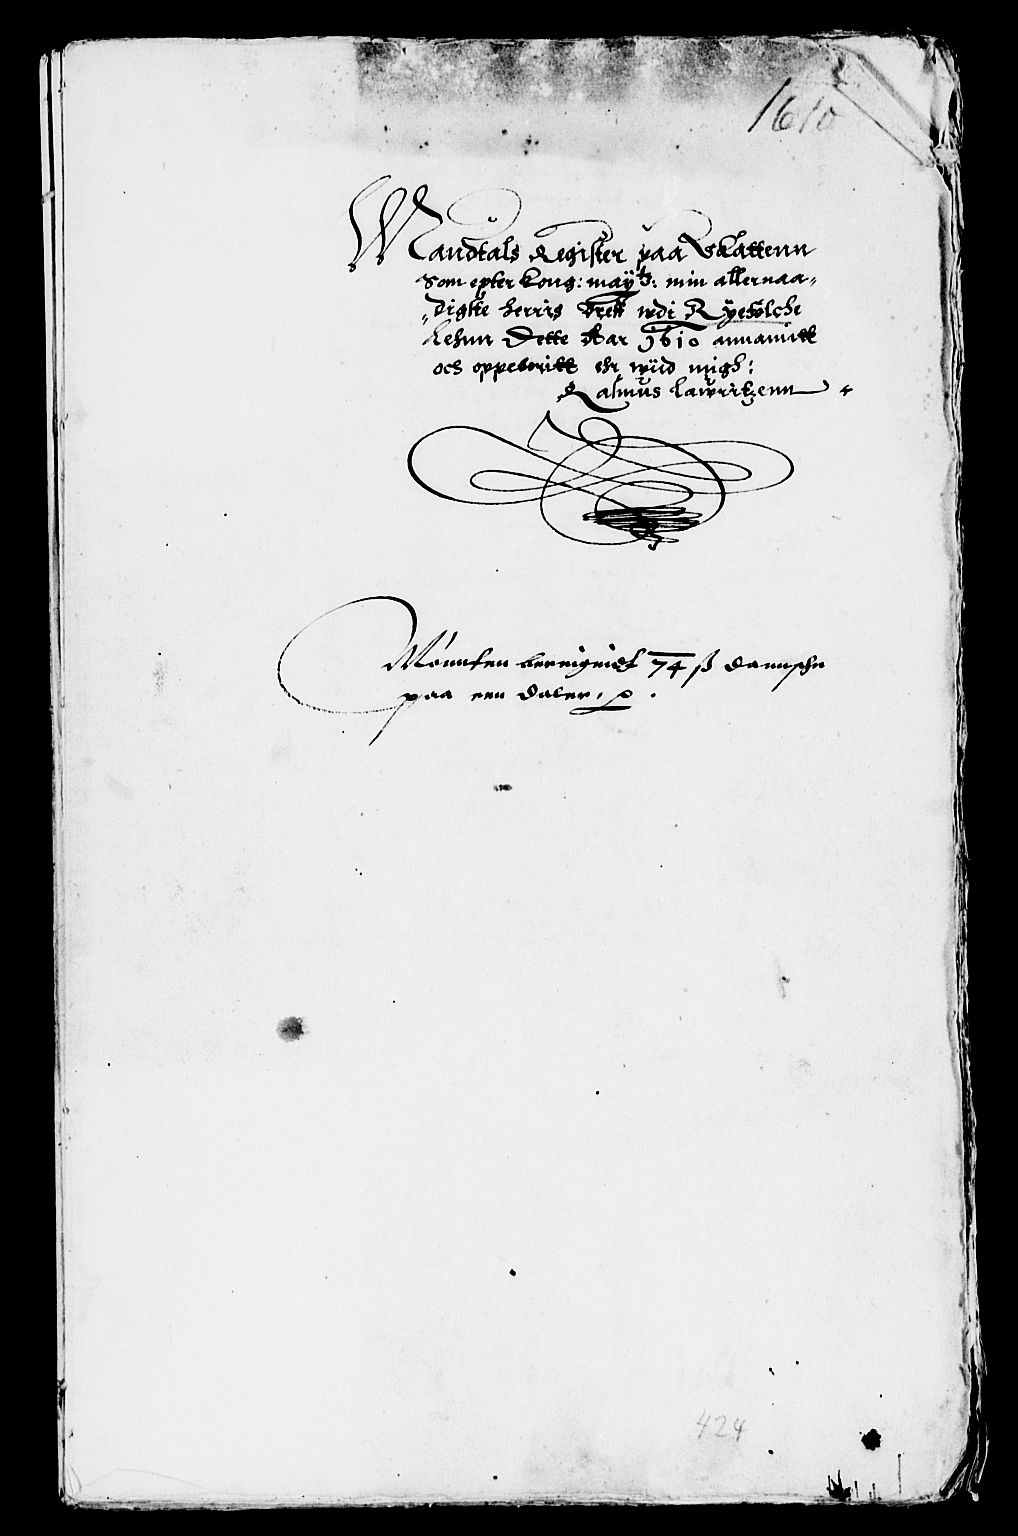 1610
Mandtals Register paa Skattenn
Som epter Kong: maytz: min allernaa-
digste herris breff wdi Ryefylcke
Lehnn Dette Aar 1610 annamitt
och oppebritt ehr wiid migh:
Rasmus Lawritzenn
Mönnten bereignidt 74 ß dannsche
paa een daler
424